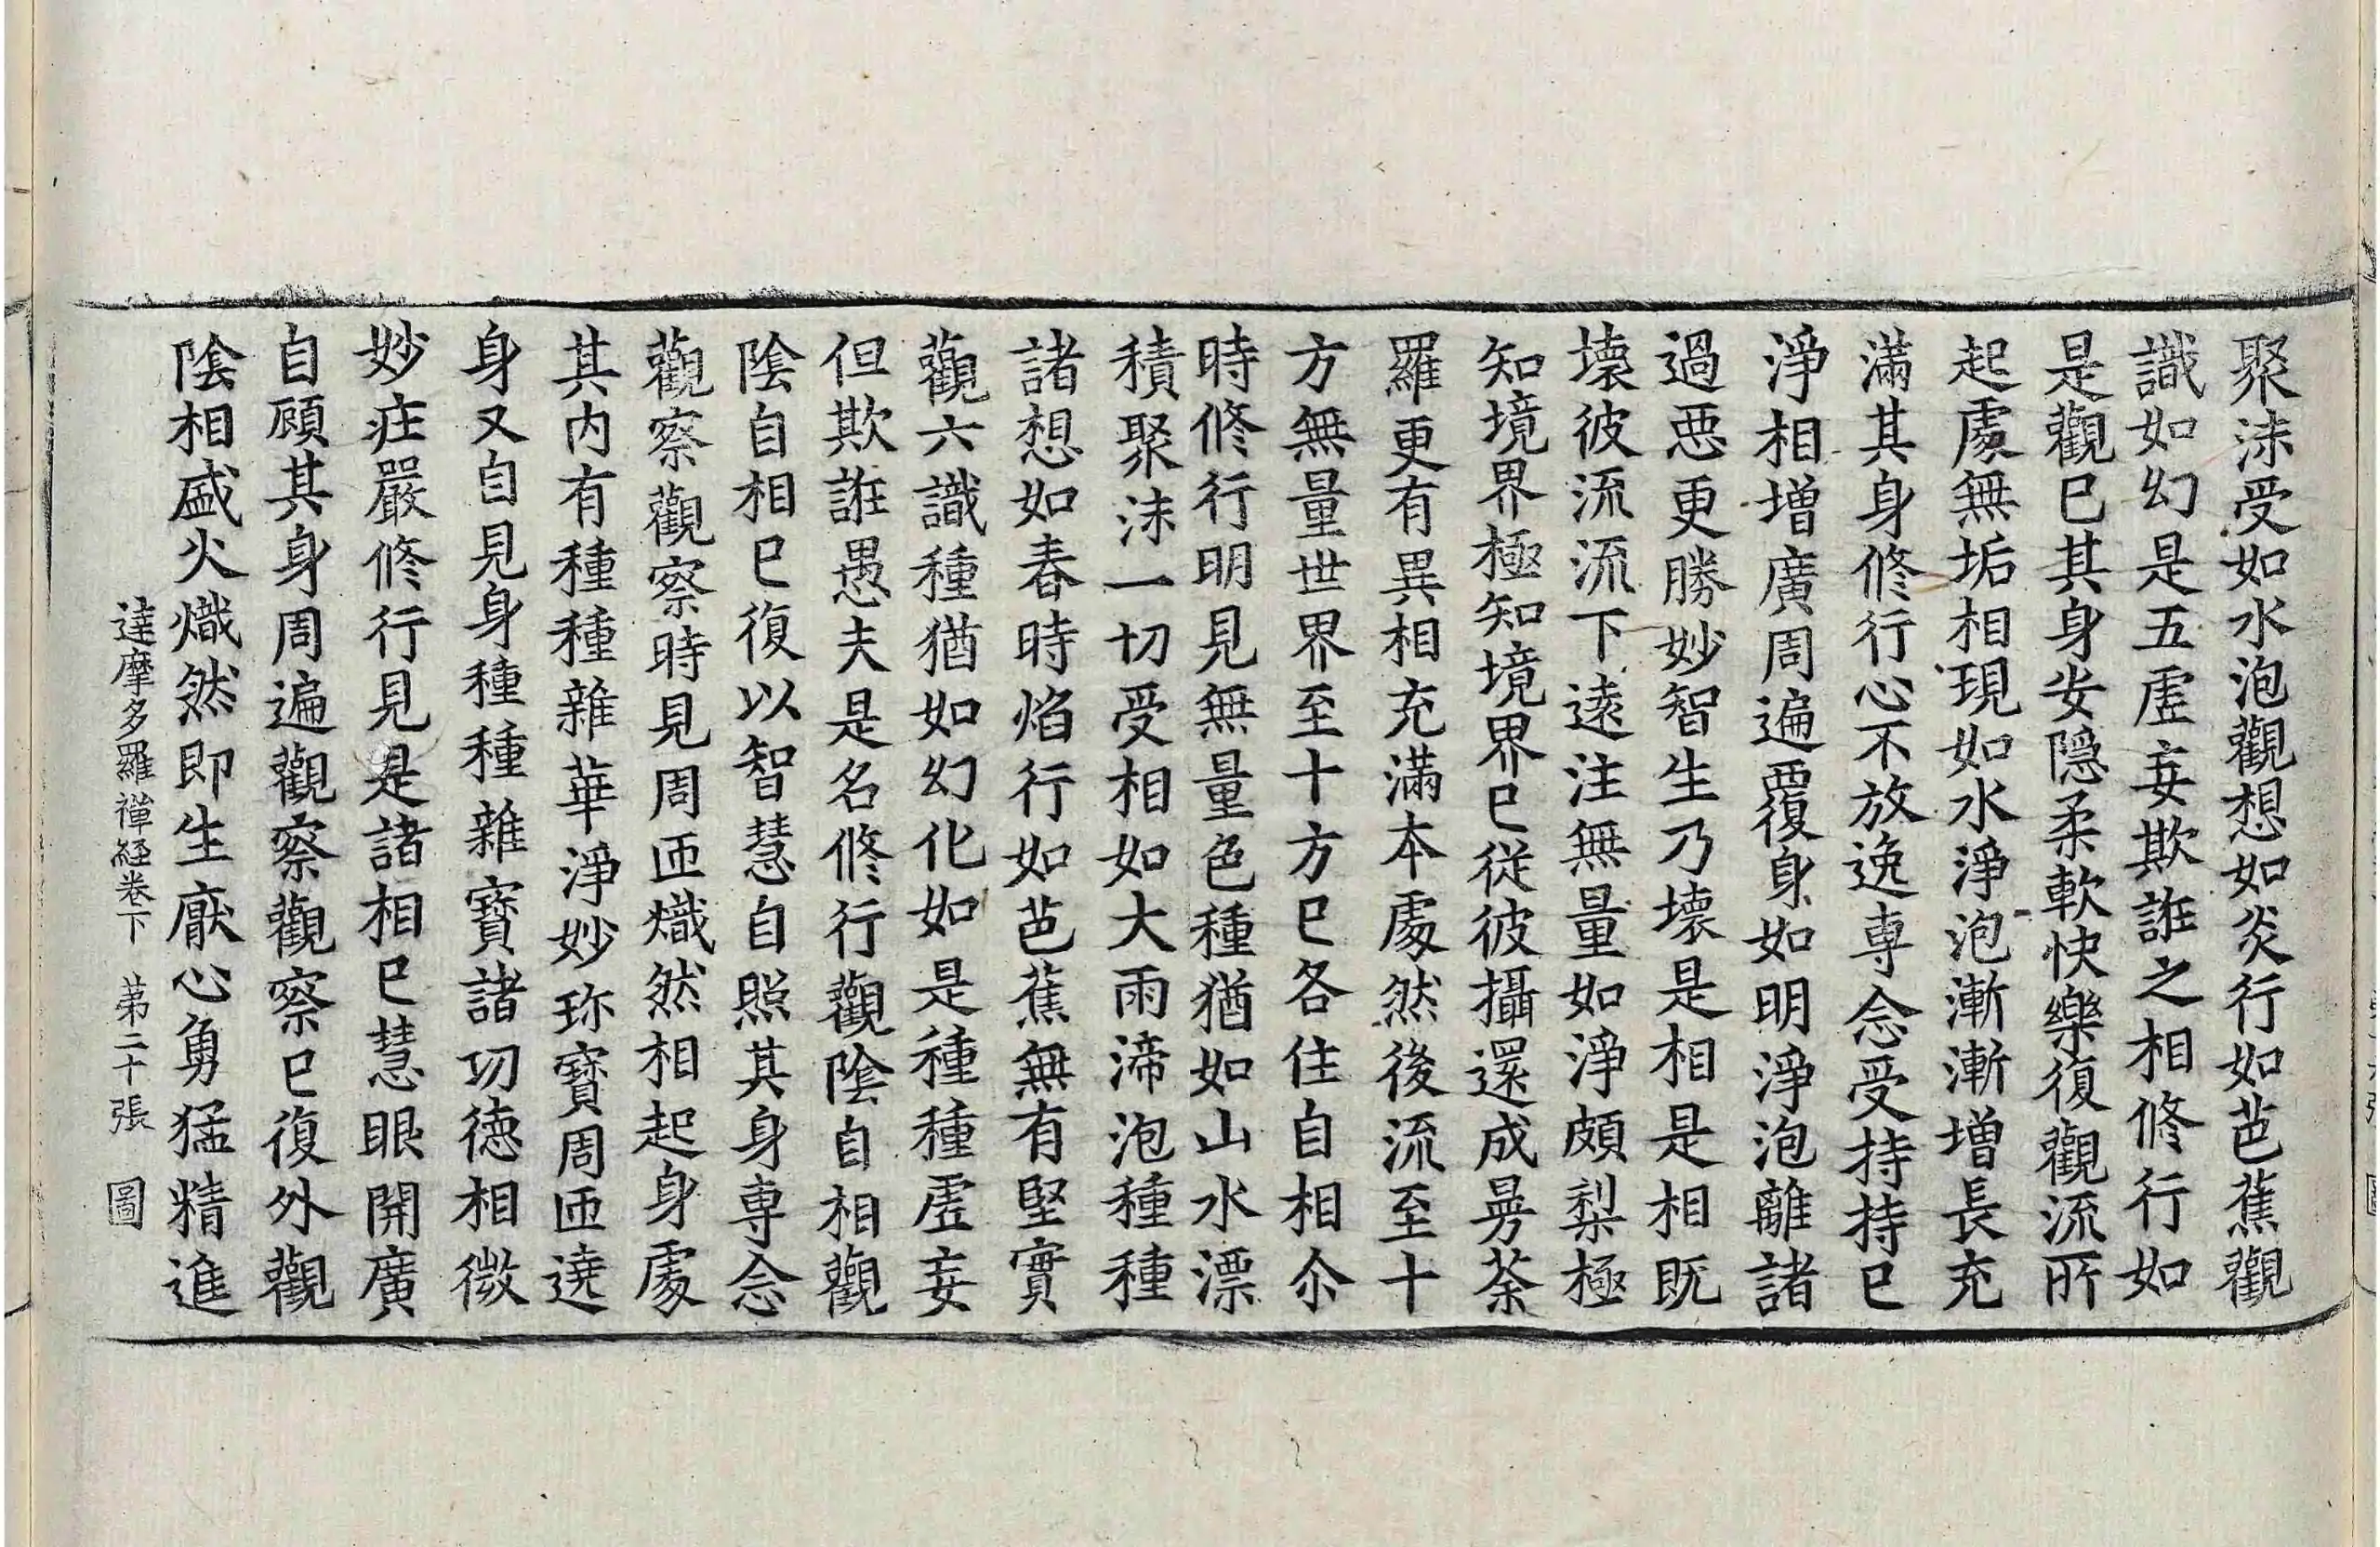 聚沫受如水泡觀想如炎行如芭蕉觀
識如幻是五虛妄欺誑之相修行如
是觀已其身安隱柔軟快樂復觀流所
起處無垢相現如水淨泡漸漸增長充
滿其身修行心不放逸專念受持持已
淨相增廣周遍覆身如明淨泡離諸
過惡更勝妙智生乃壞是相是相既
壞彼流流下遠注無量如淨頗梨極
知境界極知境界已從彼攝還成曼荼
羅更有異相充滿本處然後流至十
方無量世界至十方已各住自相尒
時修行明見無量色種猶如山水漂
積聚沫一切受相如大雨渧泡種種
諸想如春時焰行如芭蕉無有堅實
觀六識種猶如幻化如是種種虛妄
但欺誑愚夫是名修行觀陰自相觀
陰自相已復以智慧自照其身專念
觀察觀察時見周匝熾然相起身處
其內有種種雜華淨妙珎寶周匝遶
身又自見身種種雜寶諸功德相微
妙庄嚴修行見是諸相已慧眼開廣
自顧其身周遍觀察觀察已復外觀
陰相盛火熾然即生厭心勇猛精進
達摩多羅禪経卷下 第二十張 圖